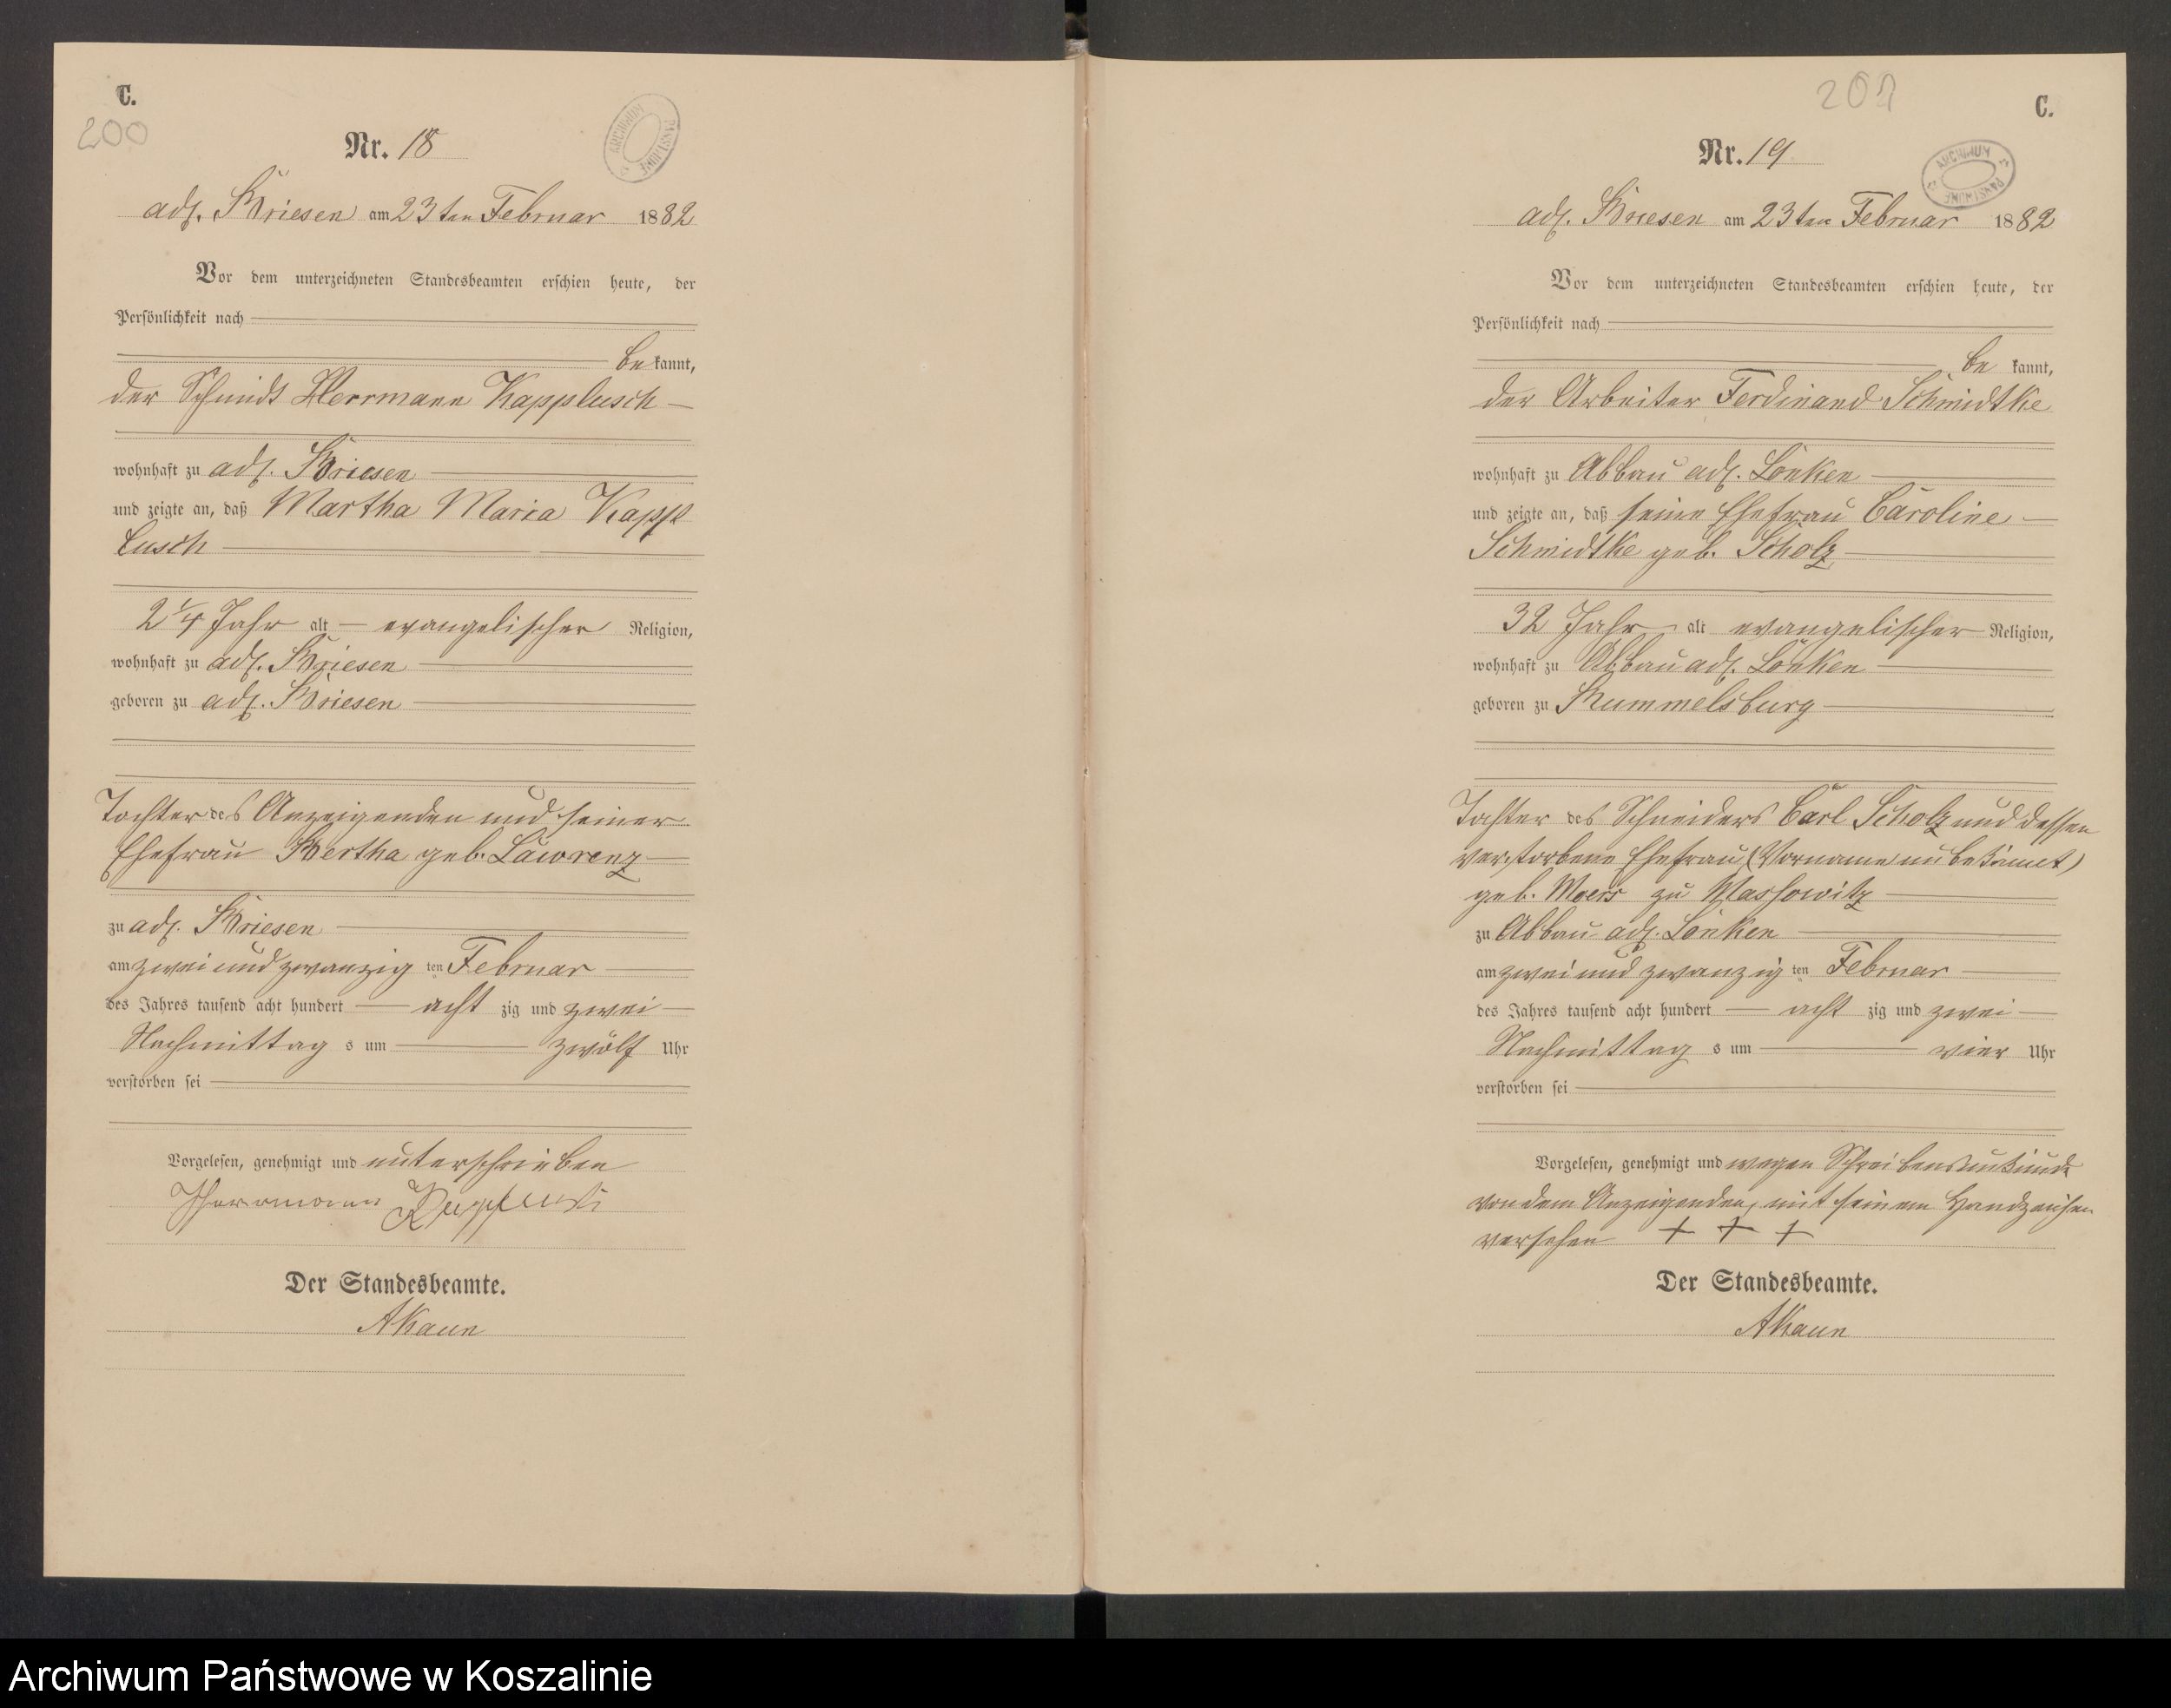 C.
200
Nr. 18
ARCHIWUM PAŃSTWOWE
adl. Briesen am 23ten Februar 1882
Vor dem unterzeichneten Standesbeamten erschien heute, der
Persönlichkeit nach
bekannt,
der Schmidt Herrmann Kapplusch
wohnhaft zu adl. Briesen
und zeigte an, daß Martha Maria Kapp
lusch
2 1/4 Jahr alt evangelischer Religion,
wohnhaft zu adl. Briesen
geboren zu adl. Briesen
Tochter des Anzeigenden und seiner
Ehefrau Bertha geb. Lawrenz
zu adl. Briesen
am zwei und zwanzig ten Februar
des Jahres tausend acht hundert acht zig und zwei
Nachmittag s um zwölf Uhr
verstorben sei
Vorgelesen, genehmigt und unterschrieben
Herrmann
Der Standesbeamte.
AKaun
201
C.
Nr. 19
ARCHIWUM PAŃSTWOWE
adl. Briesen am 23ten Februar 1882
Vor dem unterzeichneten Standesbeamten erschien heute, der
Persönlichkeit nach
be kannt,
der Arbeiter Ferdinand Schmidtke
wohnhaft zu Abbau adl. Lonken
und zeigte an, daß seine Ehefrau Caroline
Schmidtke geb. Scholz
32 Jahr alt evangelischer Religion,
wohnhaft zu Abbau adl. Lonken
geboren zu Rummelsburg
Tochter des Schneiders Carl Scholz und dessen
verstorbene Ehefrau (Vorname unbekannt)
geb. zu Massowitz
zu Abbau adl. Lonken
am zwei und zwanzig ten Februar
des Jahres tausend acht hundert acht zig und zwei
Nachmittag s um vier Uhr
verstorben sei
Vorgelesen, genehmigt und wegen Schreibensunkunde
von dem Anzeigenden, mit seinem Handzeichen
versehen + + +
Der Standesbeamte.
AKaun
Archiwum Państwowe w Koszalinie